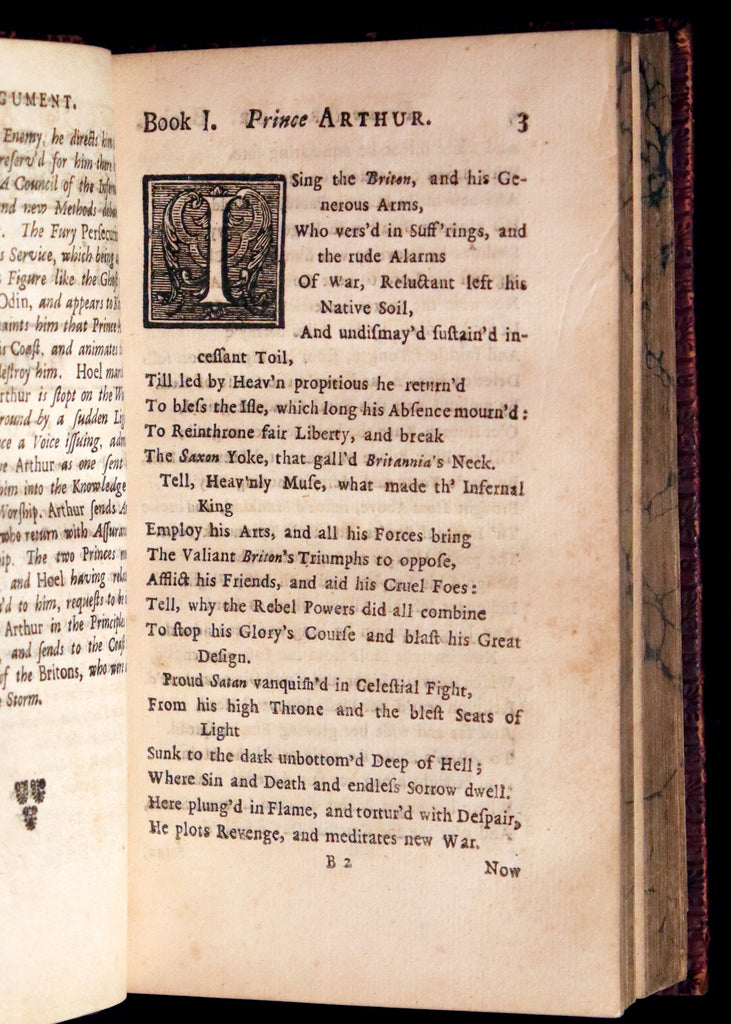 GUMENT.
Enemy, he directs him
reserv'd for him there
A Council of the Infern
nd new Methods
The Fury Persecu
s Service, which being a
s Figure like the Ghos
Odin, and appears to
aints him that Prince
is Coast, and animates
destroy him. Hoel
rthur is stopt on the
round by a sudden Lig
ce a Voice issuing,
e Arthur as one sent
him into the Knowledge
Worship. Arthur sends
who return with Assuran
ip. The two Princes
and Hoel having
'd to him, requests to
Arthur in the Principles
, and sends to the Coast
of the Britons, who were
Storm.
Book I. Prince ARTHUR. 3
I Sing the Briton, and his Ge-
nerous Arms,
Who vers'd in Suff'rings, and
the rude Alarms
Of War, Reluctant left his
Native Soil,
And undiſmay'd ſuſtain'd in-
ceſſant Toil,
Till led by Heav'n propitious he return'd
To bleſs the Iſle, which long his Abſence mourn'd:
To Reinthrone fair Liberty, and break
The Saxon Yoke, that gall'd Britannia's Neck.
Tell, Heav'nly Muſe, what made th' Infernal
King
Employ his Arts, and all his Forces bring
The Valiant Briton's Triumphs to oppoſe,
Afflict his Friends, and aid his Cruel Foes:
Tell, why the Rebel Powers did all combine
To ſtop his Glory's Courſe and blaſt his Great
Deſign.
Proud Satan vanquiſh'd in Celeſtial Fight,
From his high Throne and the bleſt Seats of
Light
Sunk to the dark unbottom'd Deep of Hell;
Where Sin and Death and endleſs Sorrow dwell.
Here plung'd in Flame, and tortur'd with Deſpair,
He plots Revenge, and meditates new War.
B 2
Now